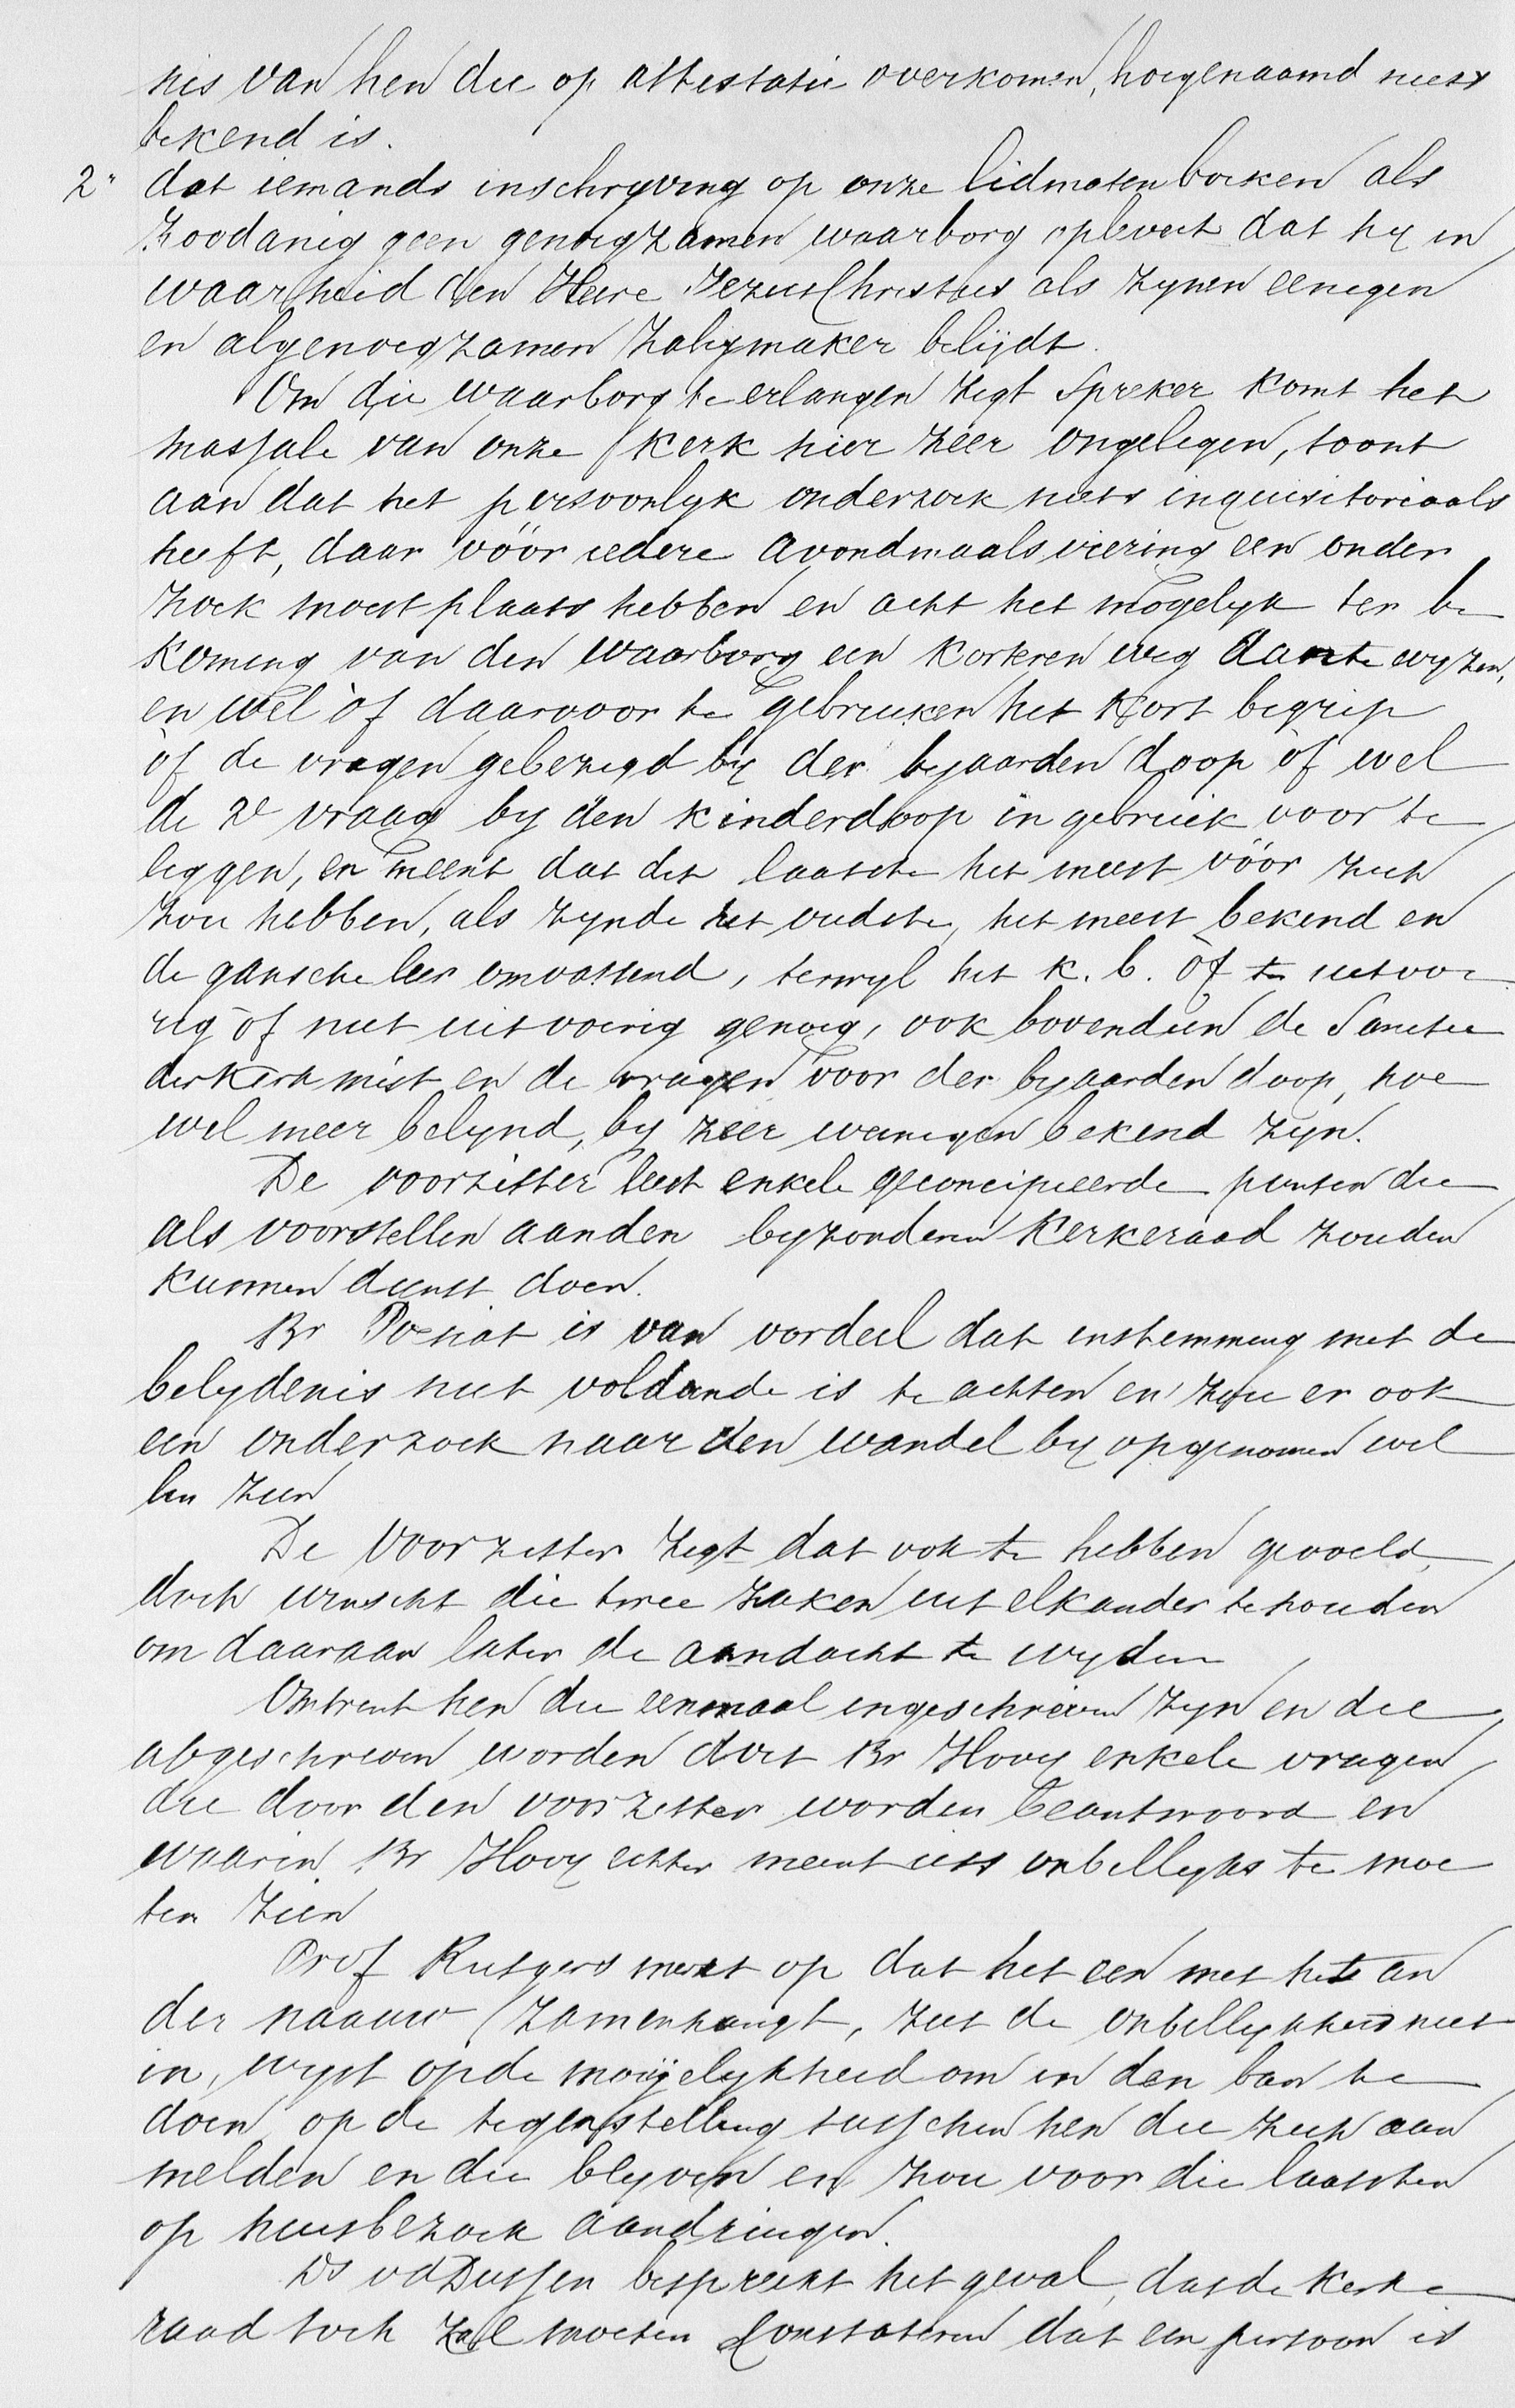 nis van hen die op attestatie overkomen, hoegenaamd niets
bekend is.
2° dat iemands inschryving op onze lidmatenboeken als
zoodanig geen genoegzamen waarborg oplevert dat hy in
waarheid den Heere Jezus Christus als zynen eenigen
en algenoegzamen Zaligmaker belijdt.
Om die waarborg te erlangen zegt Spreker komt het
massale van onze kerk hier zeer ongelegen, toont
aan dat het persoonlyk onderzoek niets inquisitoriaals
heeft, daar vóór iedere avondmaalsviering een onder
zoek moest plaats hebben en acht het mogelyk ter be
koming van den waarborg een korteren weg aan te wyzen,
en wel òf daarvoor te gebruiken het Kort begrip
òf de vragen gebezigd by der bejaarden doop òf wel
de 2e vraag by den kinderdoop in gebruik voor te
leggen, en meent dat dit laatste het meest vóór zich
zou hebben, als zynde het oudste, het meest bekend en
de gansche leer omvattend, terwyl het k. b. òf te uitvoe
rig òf niet uitvoerig genoeg, ook bovendien de Sanctie
der Kerk mist en de vragen voor der bejaarden doop, hoe
wel meer belynd, by zeer weinigen bekend zyn.
De voorzitter leest enkele geconcipieerde punten die
als voorstellen aan den byzonderen Kerkeraad zouden
kunnen dienst doen.
Br Poesiat is van oordeel dat instemming met de
belydenis niet voldoende is te achten en zou er ook
een onderzoek naar den wandel by opgenomen wil
len zien
De Voorzitter zegt dat ook te hebben gevoeld,
doch wenscht die twee zaken uit elkander te houden
om daaraan later de aandacht te wyden
Omtrent hen die eenmaal ingeschreven zyn en die
afgeschreven worden doet Br Hovy enkele vragen
die door den voorzitter worden beantwoord en
waarin Br Hovy echter meent iets onbillyks te moe
ten zien
Prof Rutgers merkt op dat het een met het an
der naauw zamenhangt, ziet de onbillykheid niet
in, wyst op de moeijelykheid om in den ban te
doen op de tegenstelling tusschen hen die zich aan
melden en die blyven en zou voor die laatsten
op huisbezoek aandringen.
Ds vd Dussen bespreekt het geval, dat de Kerke
raad toch zal moeten constateren dat een persoon is